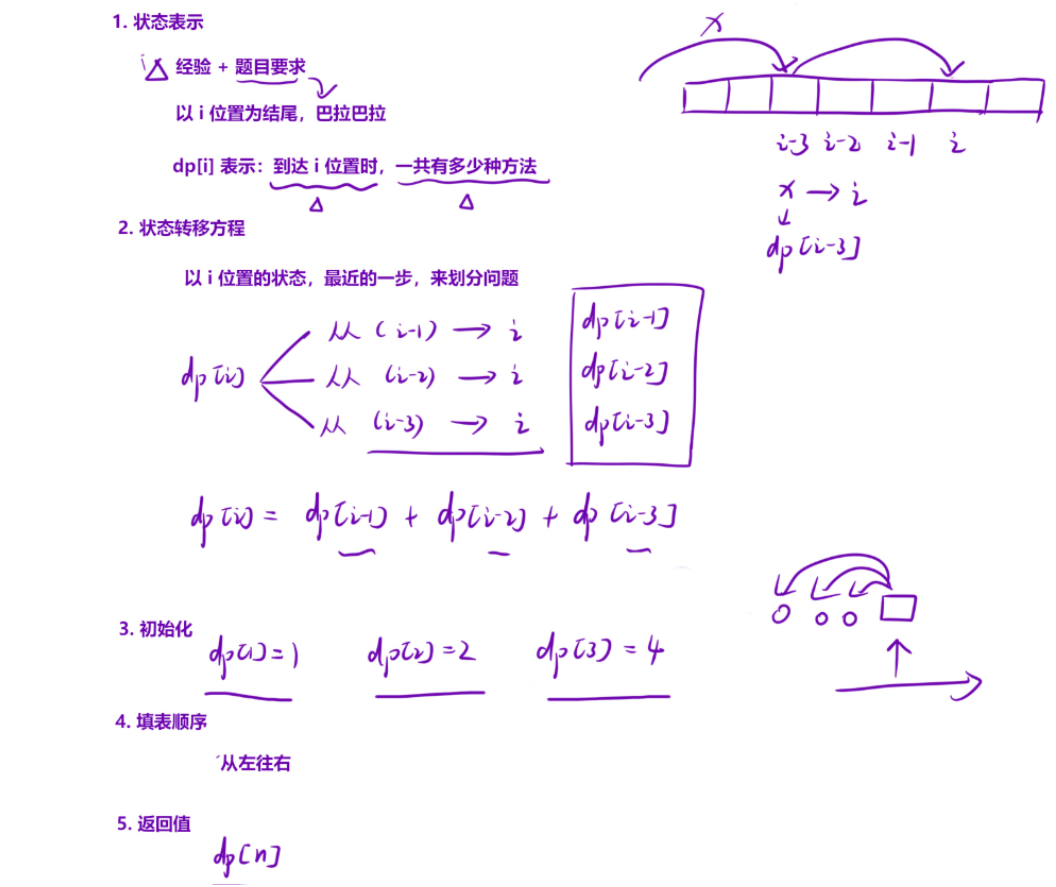 1. 状态表示
经验 + 题目要求
以 i 位置为结尾，巴拉巴拉
dp[i] 表示：到达 i 位置时，一共有多少种方法
x
i-3 i-2 i-1 i
x → i
dp[i-3]
2. 状态转移方程
以 i 位置的状态，最近的一步，来划分问题
dp[i]
从 (i-1) → i dp[i-1]
从 (i-2) → i dp[i-2]
从 (i-3) → i dp[i-3]
dp[i] = dp[i-1] + dp[i-2] + dp[i-3]
3. 初始化
dp[1] = 1 dp[2] = 2 dp[3] = 4
4. 填表顺序
从左往右
5. 返回值
dp[n]